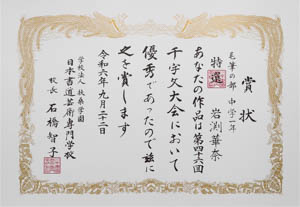 賞状
毛筆の部 中学一年
特選 岩渕華奈
あなたの作品は第四十六回
千字文大会において
優秀であったので茲に
之を賞します
令和六年九月二十二日
学校法人 扶桑学園
日本書道芸術専門学校
校長 石橋智子